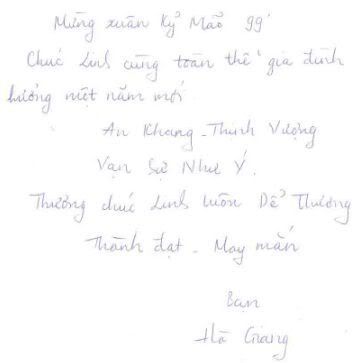 Mừng xuân Kỷ Mão 99'
Chúc Linh cùng toàn thể gia đình
hưởng một năm mới
An Khang - Thịnh Vượng
Vạn Sự Như Ý.
Thương chúc Linh luôn Dể Thương
Thành đạt - May mắn
Bạn
Hà Giang